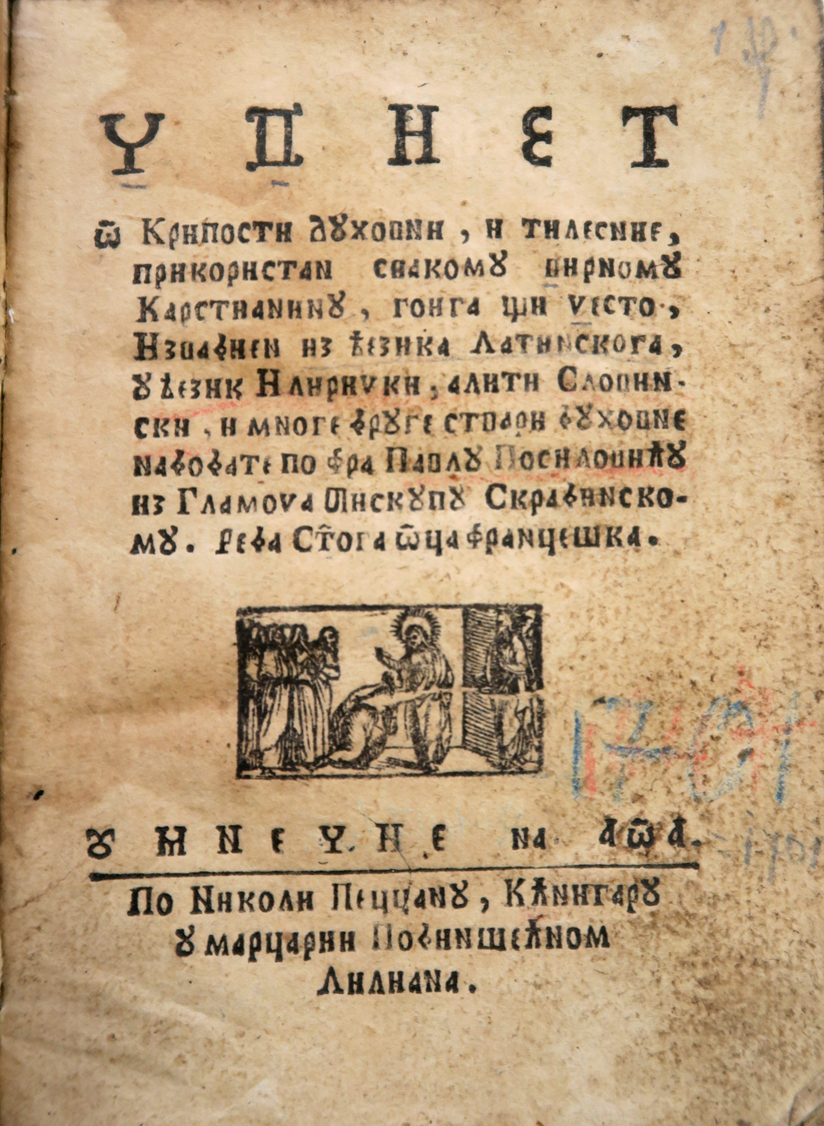 Ч В И Е Т
ѿ Крипости дꙋховни , и тилесние,
прикористан свакомꙋ вирномꙋ
Карстианинꙋ , гоига щи често ,
Извадиен из ћезика Латинскога,
ꙋ ћезик Илирички, алити Словин-
ски , и многе дрꙋге ствари дꙋховне
надодате по фра Павлꙋ Посиловићꙋ
из Гламоча Бискꙋпꙋ Скрадинско-
мꙋ. Реда Ст҃ога ѿца францешка.
1701
Ꙋ М Н Е Ч И Е на АѾА.
1701
По Николи Пеццанꙋ, Кћнигарꙋ
ꙋ марцарии Подинщећном
Лилиана.